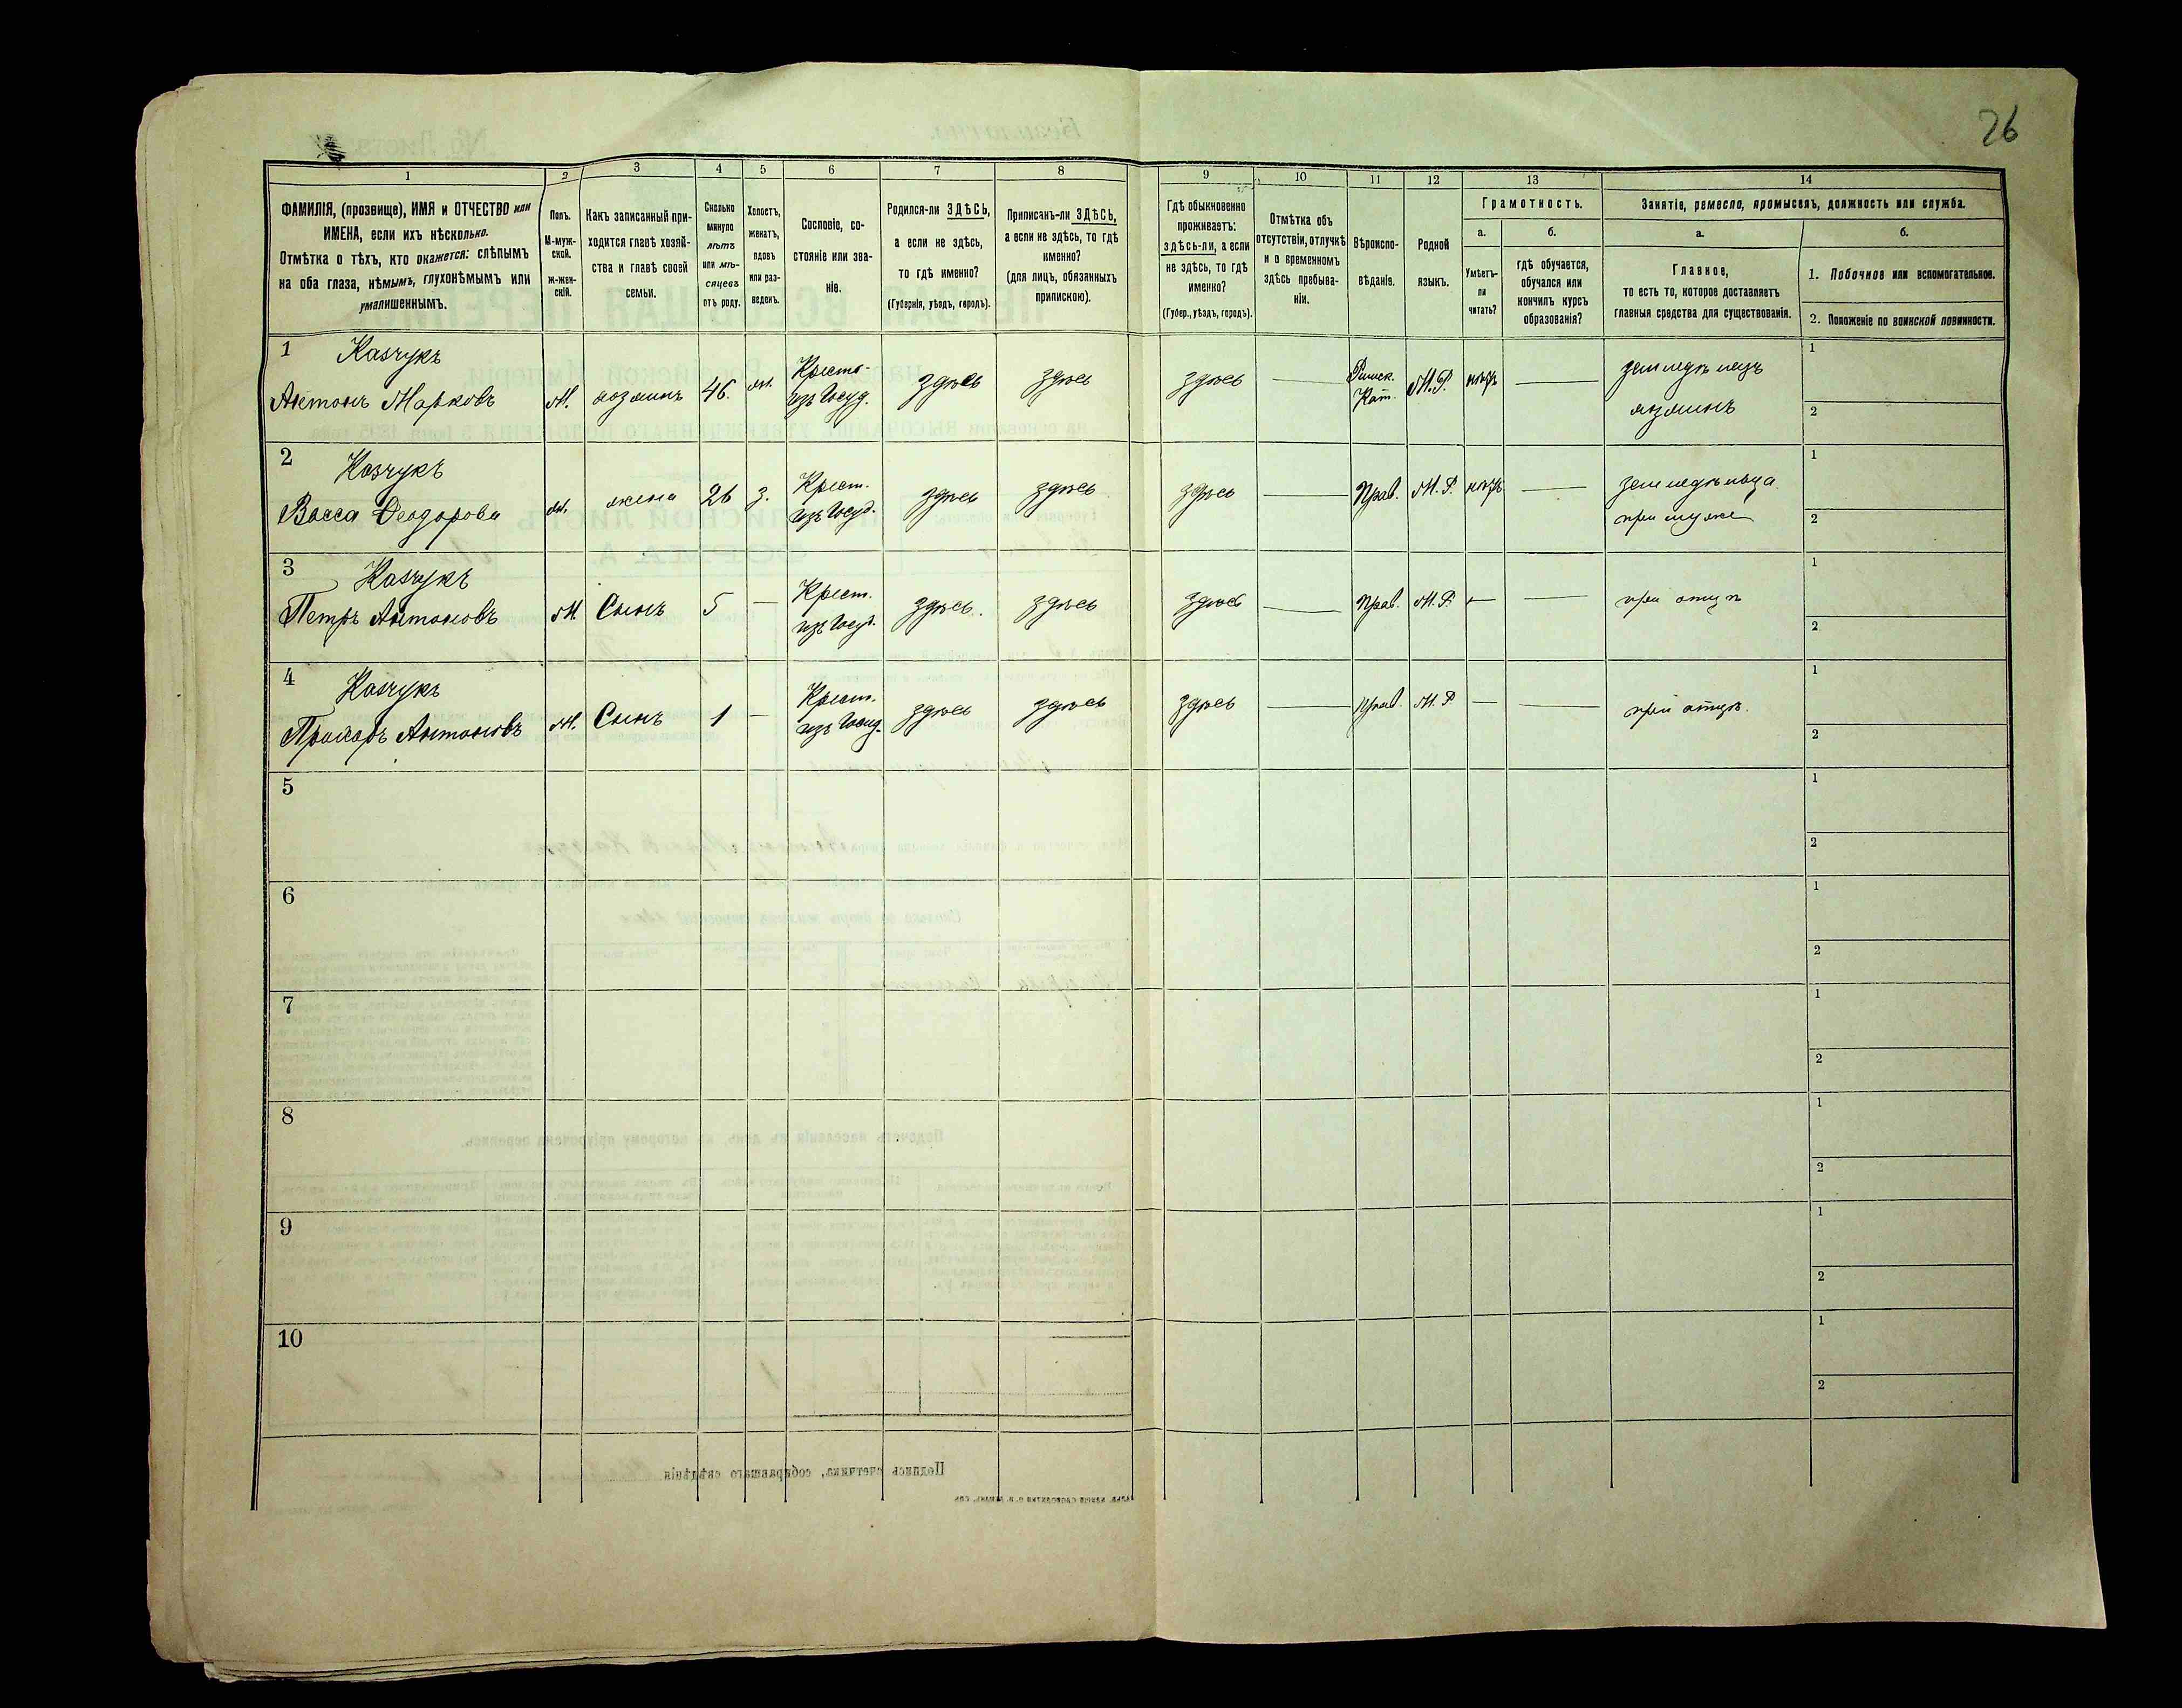 26
1 2 3 4 5 6 7 8 9 10 11 12 13 14
ФАМИЛІЯ, (прозвище), ИМЯ и ОТЧЕСТВО или
ИМЕНА, если ихъ нѣсколько.
Отмѣтка о тѣхъ, кто окажется: слѣпымъ
на оба глаза, нѣмымъ, глухонѣмымъ или
умалишеннымъ.
Полъ.
М-муж-
ской.
ж-жен-
скій.
Какъ записанный при-
ходится главѣ хозяй-
ства и главѣ своей
семьи.
Сколько
минуло
лѣтъ
или мѣ-
сяцевъ
отъ роду.
Холостъ,
женатъ,
вдовъ
или раз-
веденъ.
Сословіе, со-
стояніе или зва-
ніе.
Родился-ли ЗДѢСЬ,
а если не здѣсь,
то гдѣ именно?
(Губернія, уѣздъ, городъ).
Приписанъ-ли ЗДѢСЬ,
а если не здѣсь, то гдѣ
именно?
(для лицъ, обязанныхъ
припискою).
Гдѣ обыкновенно
проживаетъ:
здѣсь-ли, а если
не здѣсь, то гдѣ
именно?
(Губер., уѣздъ, городъ).
Отмѣтка объ
отсутствіи, отлучкѣ
и о временномъ
здѣсь пребыва-
ніи.
Вѣроиспо-
вѣданіе.
Родной
языкъ.
Грамотность.
а.
Умѣетъ-
ли
читать?
б.
гдѣ обучается,
обучался или
кончилъ курсъ
образованія?
Занятіе, ремесло, промыселъ, должность или служба.
а.
Главное,
то есть то, которое доставляетъ
главныя средства для существованія.
б.
1. Побочное или вспомогательное.
2. Положеніе по воинской повинности.
1 Казчукъ
Антонъ Марковъ
М. хозяинъ 46. ж.
Крест.
изъ Госуд.
здѣсь здѣсь здѣсь
Римск.
Кат.
М.Р. нѣтъ
земледѣлецъ
хозяинъ
1
2
2 Казчукъ
Васса Ѳеодорова
ж. жена 26 з.
Крест.
изъ Госуд.
здѣсь здѣсь здѣсь Прав. М.Р. нѣтъ
земледѣльца
при мужѣ
1
2
3 Казчукъ
Петръ Антоновъ
М. Сынъ 5 —
Крест.
изъ Госуд.
здѣсь. здѣсь здѣсь Прав. М.Р. — —
при отцѣ
1
2
4 Казчукъ
Прохоръ Антоновъ
М. Сынъ 1 —
Крест.
изъ Госуд.
здѣсь здѣсь здѣсь Прав. М.Р — —
при отцѣ.
1
2
5
1
2
6
1
2
7
1
2
8
1
2
9
1
2
10
1
2